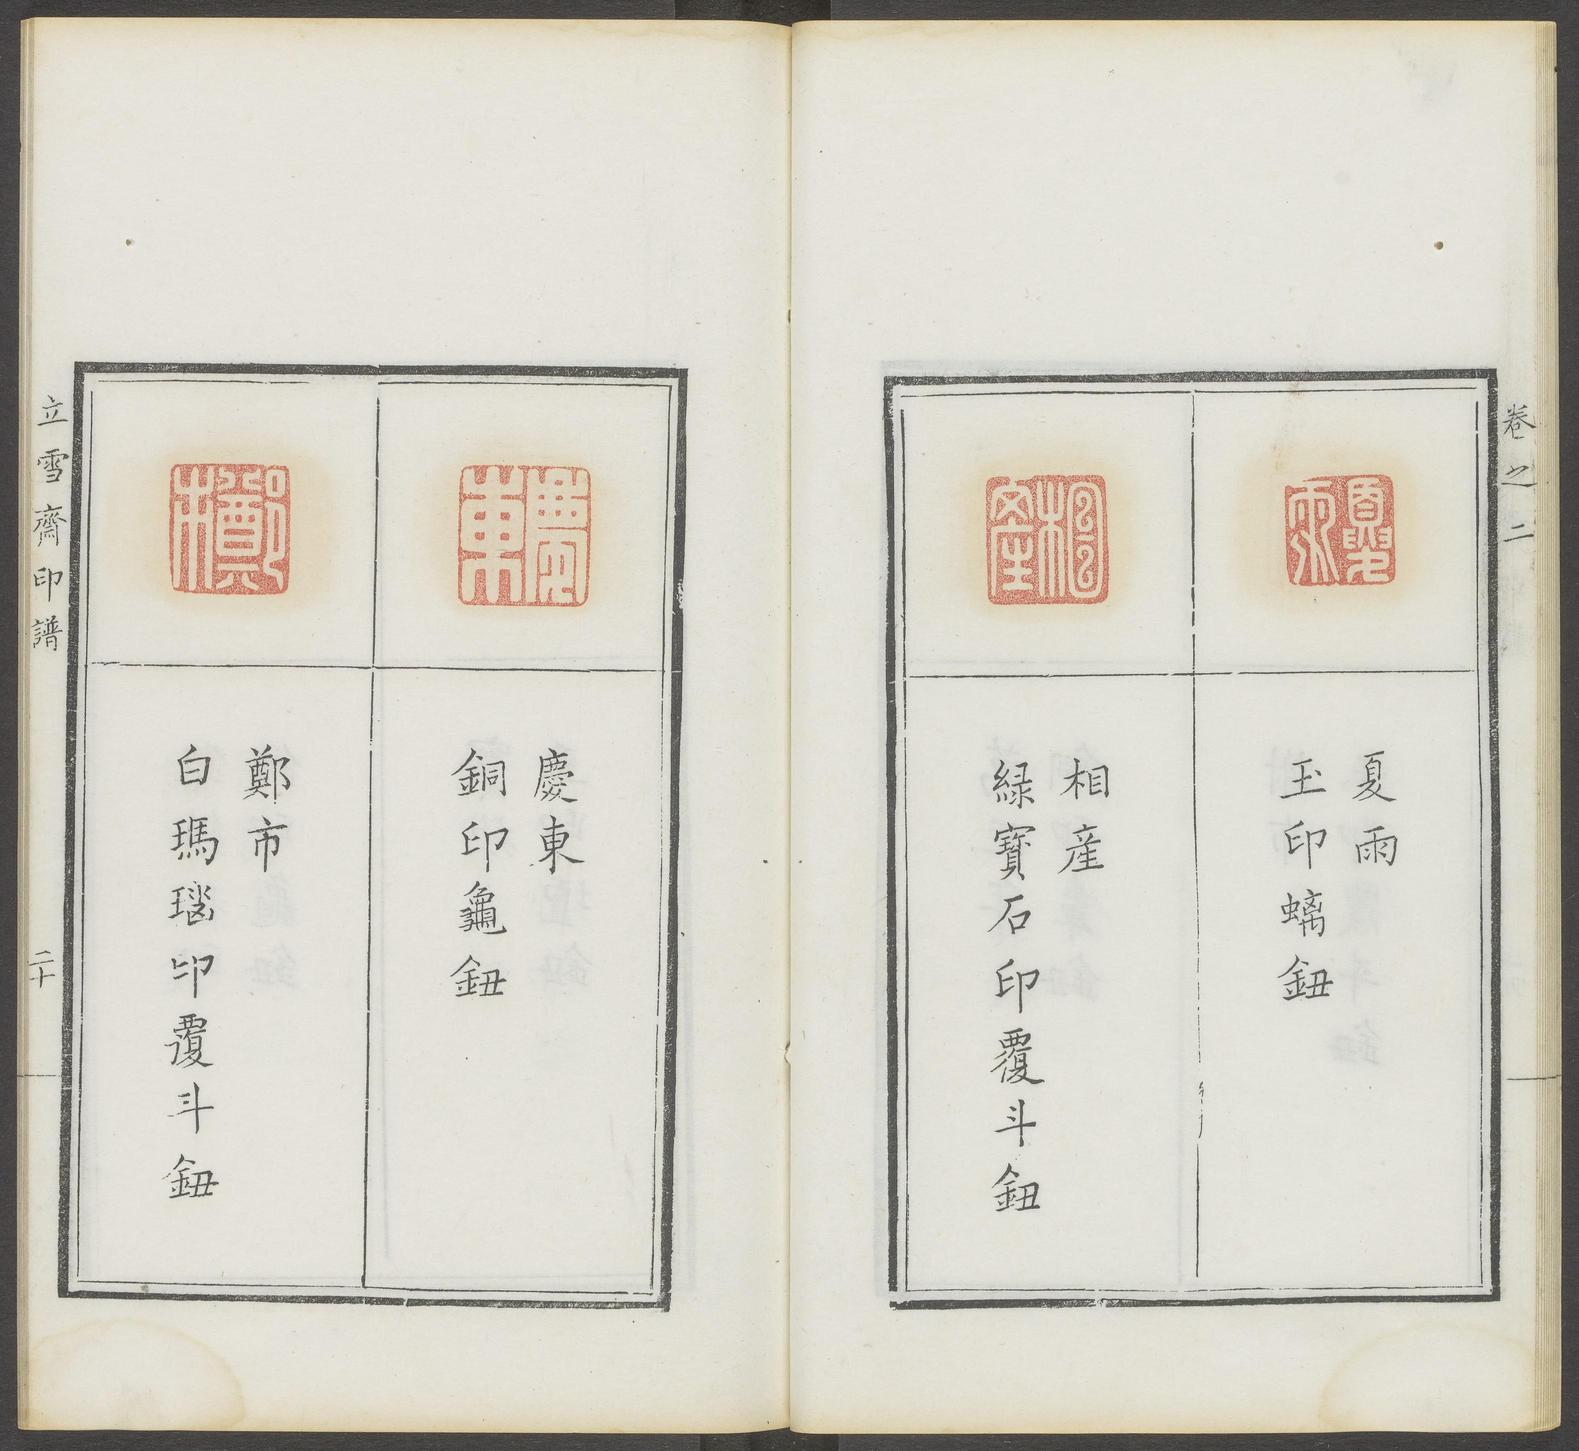 卷之二
夏雨
夏雨
玉印螭鈕
相産
相産
緑寶石印覆斗鈕
慶東
慶東
銅印龜鈕
鄭市
鄭市
白瑪瑙印覆斗鈕
立雪齋印譜
二十